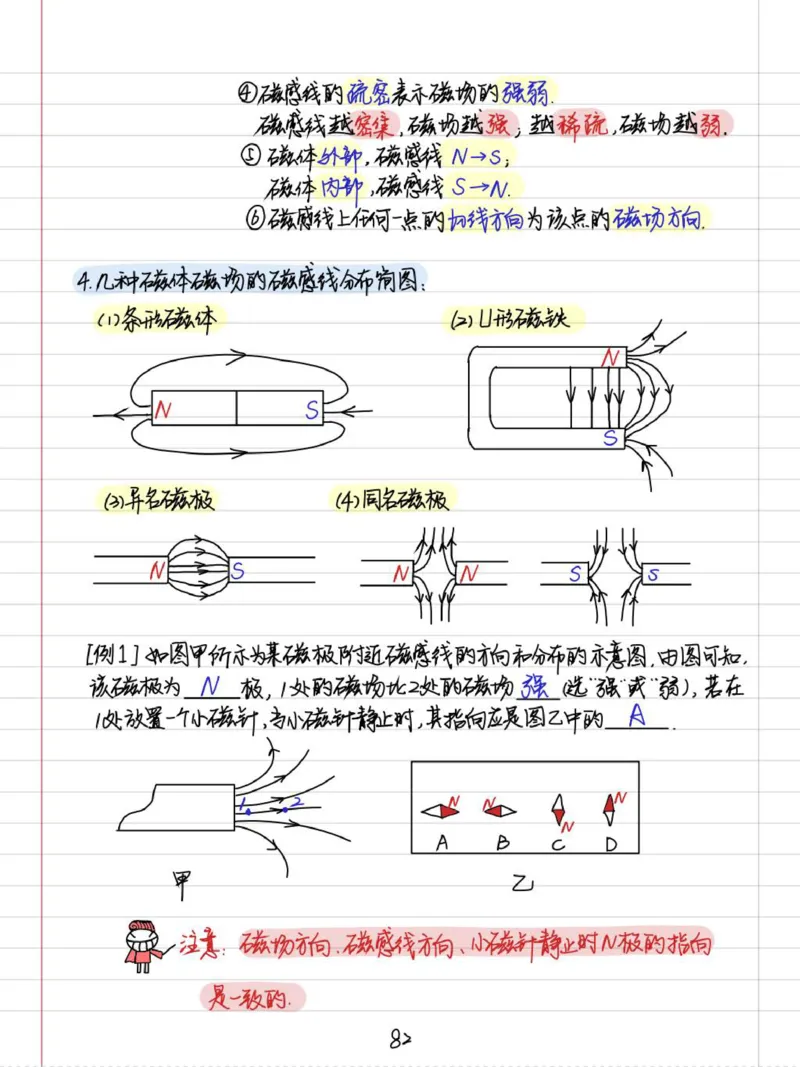 ④磁感线的疏密表示磁场的强弱.
磁感线越密集,磁场越强;越稀疏,磁场越弱.
⑤磁体外部,磁感线 N→S;
磁体内部,磁感线 S→N.
⑥磁感线上任何一点的切线方向为该点的磁场方向.
4.几种磁体磁场的磁感线分布简图:
(1)条形磁体 (2)U形磁铁
N S
N
S
(3)异名磁极 (4)同名磁极
N S N N S S
[例1]如图甲所示为某磁极附近磁感线的方向和分布的示意图,由图可知,
该磁极为 N 极,1处的磁场比2处的磁场 强 (选"强"或"弱"),若在
1处放置一个小磁针,当小磁针静止时,其指向应是图乙中的 A .
1 2
N N N N
A B C D
甲 乙
注意:磁场方向、磁感线方向、小磁针静止时N极的指向
是一致的.
82